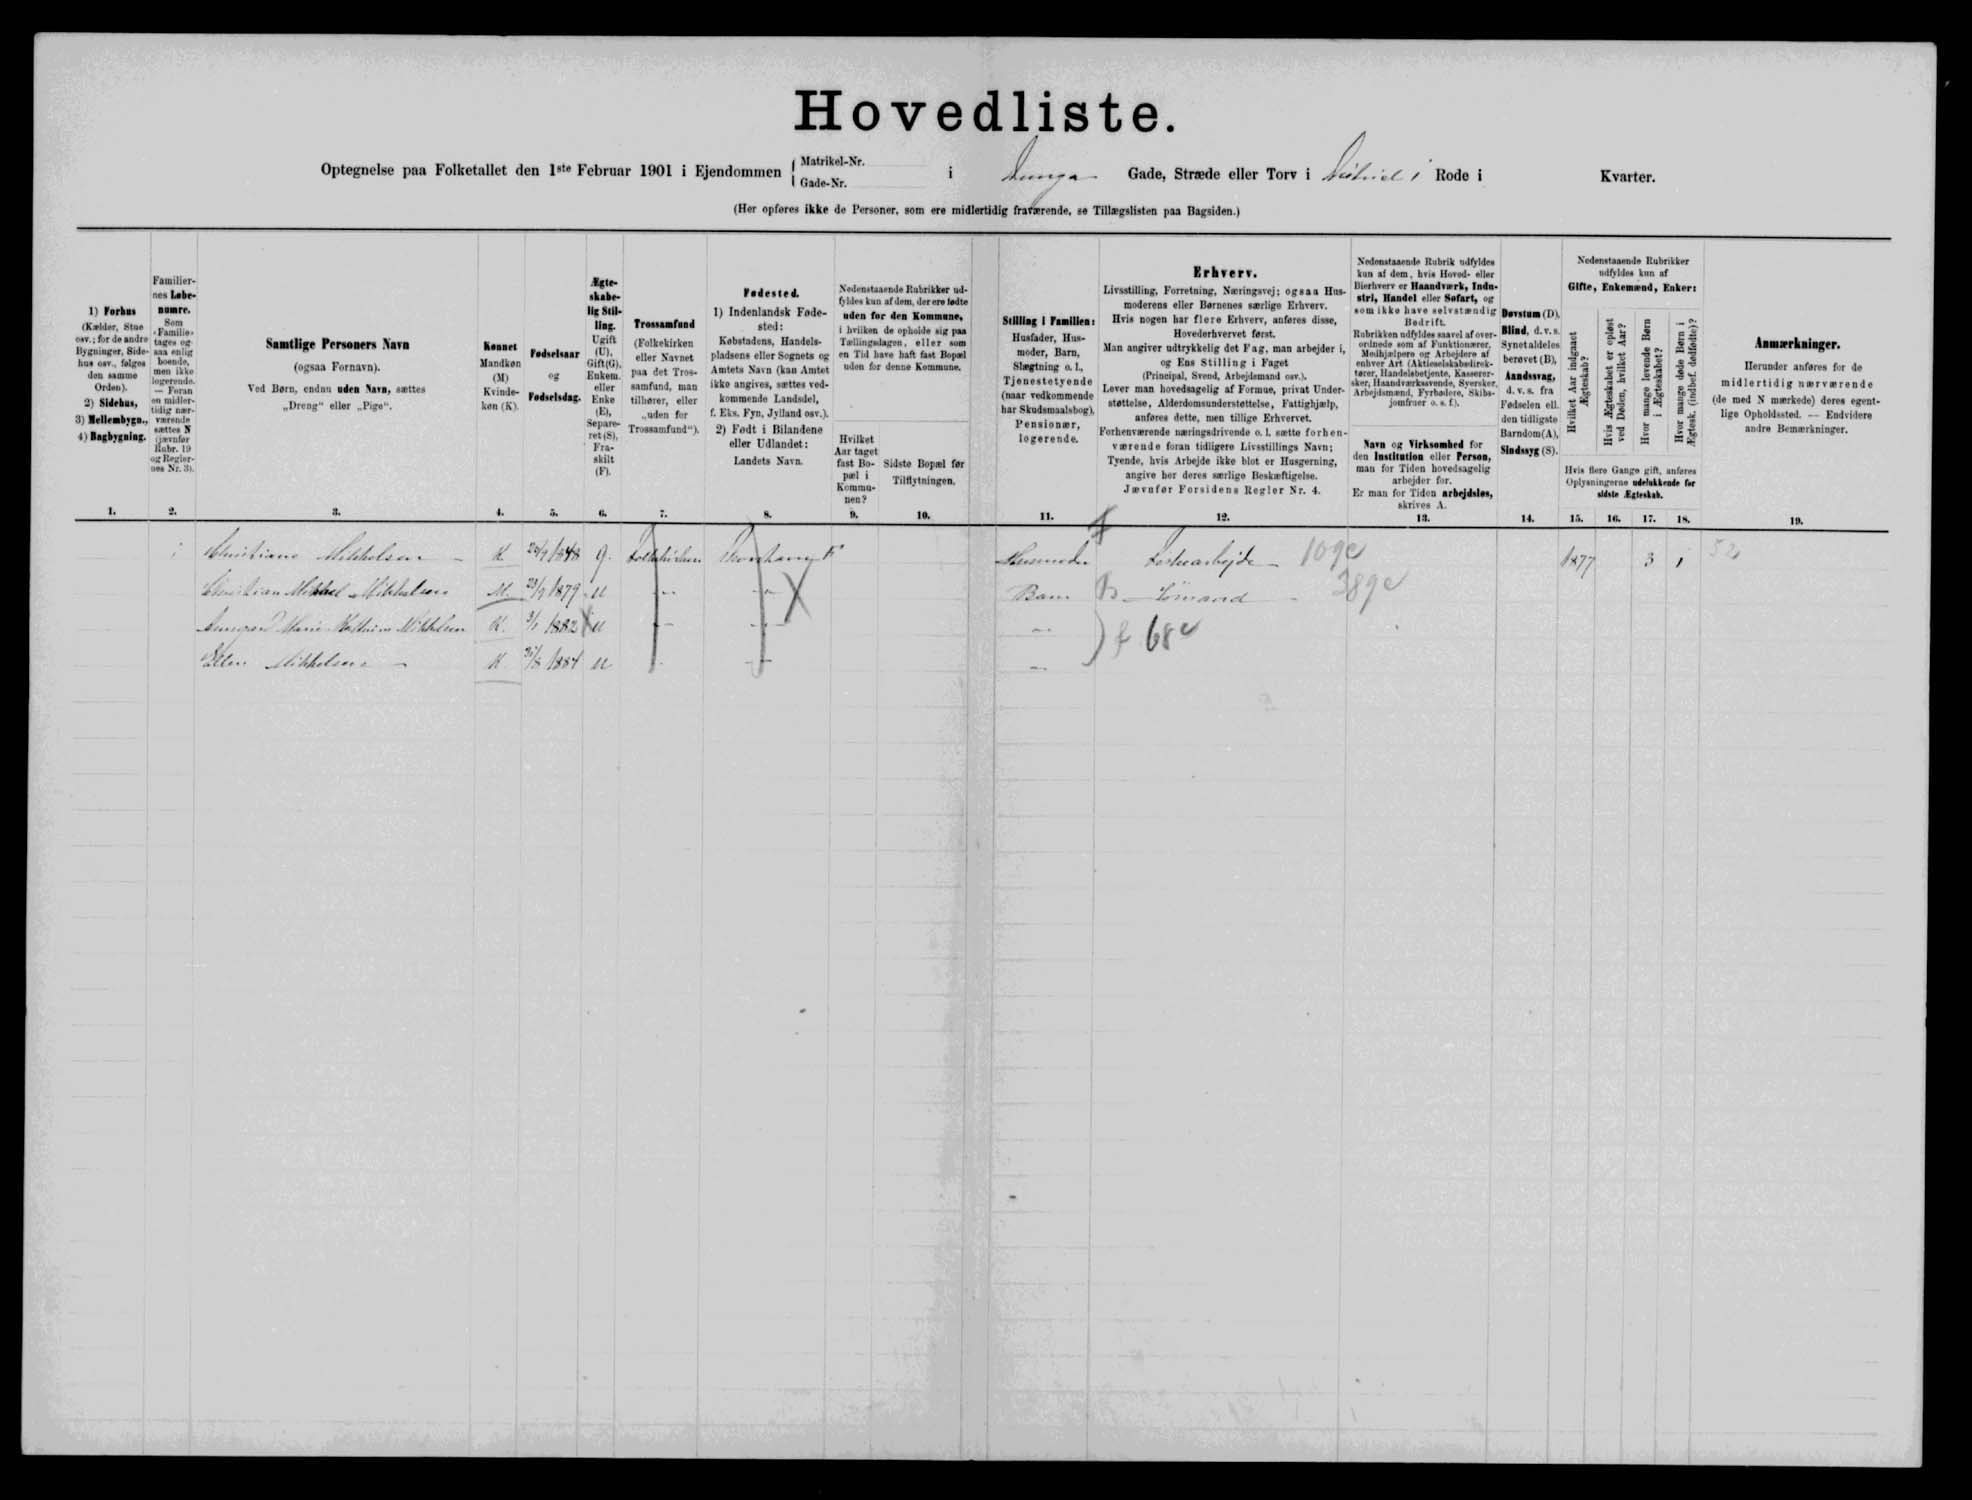 Hovedliste.
Optegnelse paa Folketallet den 1ste Februar 1901 i Ejendommen { Matrikel-Nr. Gade-Nr. i Gade, Stræde eller Torv i Rode i Kvarter.
(Her opføres ikke de Personer, som ere midlertidig fraværende, se Tillægslisten paa Bagsiden.)
1) Forhus
(Kælder, Stue
osv.; for de andre
Bygninger, Side-
hus osv., følges
den samme
Orden).
2) Sidehus,
3) Mellembygn.,
4) Bagbygning.
Familier-
nes Løbe-
numre.
Som
»Familie»
tages og-
saa enlig
boende,
men ikke
logerende.
— Foran
en midler-
tidig nær-
værende
sættes N
(jævnfør
Rubr. 19
og Regler-
nes Nr. 3).
Samtlige Personers Navn
(ogsaa Fornavn).
Ved Børn, endnu uden Navn, sættes
„Dreng“ eller „Pige“.
Kønnet
Mandkøn
(M)
Kvinde-
køn (K).
Fødselsaar
og
Fødselsdag.
Ægte-
skabe-
lig Stil-
ling.
Ugift
(U),
Gift (G),
Enkem.
eller
Enke
(E),
Separe-
ret (S),
Fra-
skilt
(F).
Trossamfund
(Folkekirken
eller Navnet
paa det Tros-
samfund, man
tilhører, eller
„uden for
Trossamfund“).
Fødested.
1) Indenlandsk Føde-
sted:
Købstadens, Handels-
pladsens eller Sognets og
Amtets Navn (kan Amtet
ikke angives, sættes ved-
kommende Landsdel,
f. Eks. Fyn, Jylland osv.).
2) Født i Bilandene
eller Udlandet:
Landets Navn.
Nedenstaaende Rubrikker ud-
fyldes kun af dem, der ere fødte
uden for den Kommune,
i hvilken de opholde sig paa
Tællingsdagen, eller som
en Tid have haft fast Bopæl
uden for denne Kommune.
Hvilket
Aar taget
fast Bo-
pæl i
Kommu-
nen?
Sidste Bopæl før
Tilflytningen.
Stilling i Familien:
Husfader, Hus-
moder, Barn,
Slægtning o. l.,
Tjenestetyende
(naar vedkommende
har Skudsmaalsbog),
Pensionær,
logerende.
Erhverv.
Livsstilling, Forretning, Næringsvej; ogsaa Hus-
moderens eller Børnenes særlige Erhverv.
Hvis nogen har flere Erhverv, anføres disse,
Hovederhvervet først.
Man angiver udtrykkelig det Fag, man arbejder i,
og Ens Stilling i Faget
(Principal, Svend, Arbejdsmand osv.).
Lever man hovedsagelig af Formue, privat Under-
støttelse, Alderdomsunderstøttelse, Fattighjælp,
anføres dette, men tillige Erhvervet.
Forhenværende næringsdrivende o. l. sætte forhen-
værende foran tidligere Livsstillings Navn;
Tyende, hvis Arbejde ikke blot er Husgerning,
angive her deres særlige Beskæftigelse.
Jævnfør Forsidens Regler Nr. 4.
Nedenstaaende Rubrik udfyldes
kun af dem, hvis Hoved- eller
Bierhverv er Haandværk, Indu-
stri, Handel eller Søfart, og
som ikke have selvstændig
Bedrift.
Rubrikken udfyldes saavel af over-
ordnede som af Funktionærer,
Medhjælpere og Arbejdere af
enhver Art (Aktieselskabsdirek-
tører, Handelsbetjente, Kasserer-
sker, Haandværkssvende, Syersker,
Arbejdsmænd, Fyrbødere, Skibs-
jomfruer o. s. f.).
Navn og Virksomhed for
den Institution eller Person,
man for Tiden hovedsagelig
arbejder for.
Er man for Tiden arbejdsløs,
skrives A.
Døvstum (D),
Blind, d. v. s.
Synet aldeles
berøvet (B),
Aandssvag,
d. v. s. fra
Fødselen ell.
den tidligste
Barndom (A),
Sindssyg (S).
Nedenstaaende Rubrikker
udfyldes kun af
Gifte, Enkemænd, Enker:
Hvilket Aar indgaaet
Ægteskab?
Hvis Ægteskabet er opløst
ved Døden, hvilket Aar?
Hvor mange levende Børn
i Ægteskabet?
Hvor mange døde Børn i
Ægtesk. (indbef. dødfødte)?
Hvis flere Gange gift, anføres
Oplysningerne udelukkende for
sidste Ægteskab.
Anmærkninger.
Herunder anføres for de
midlertidig nærværende
(de med N mærkede) deres egent-
lige Opholdssted. — Endvidere
andre Bemærkninger.
1. 2. 3. 4. 5. 6. 7. 8. 9. 10. 11. 12. 13. 14. 15. 16. 17. 18. 19.
Christiane Mikkelsen K 1848 g. Folkekirken Thorshavn F Husmoder Fiskearbejde 109c 1877 3 1 52
Christian Mikkel Mikkelsen M. 23/9 1879 U Barn Sømand 389c
Marie Mikkelsen K. 1882 U 68c
Ellen Mikkelsen K 1884 U